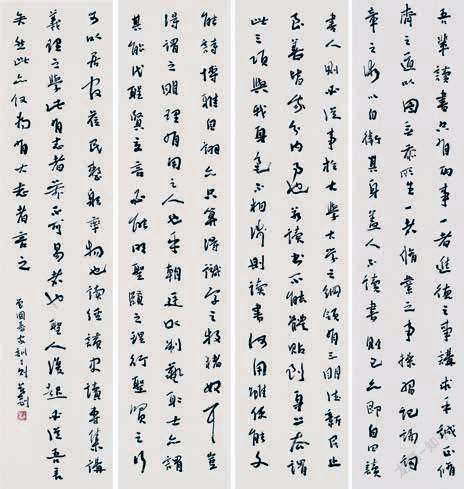 吾輩讀書只有兩事一者進德之事講求乎誠正修
齊之道以圖無忝所生一者修業之事操習記誦詞
章之術以自衛其身蓋人不讀書則已亦即自曰讀
書人則必從事於大學大學之綱領有三明德新民止
至善皆我分内事也若讀書不能體貼到身上去謂
此三項與我身毫不相涉則讀書何用雖使能文
能詩博雅自詡亦只算得識字之牧豬奴耳豈
得謂之明理有用之人也乎朝廷以制藝取士亦謂
其能代聖賢立言必能明聖賢之理行聖賢之行
可以居官莅民整躬率物也讀經讀史讀專集講
義理之學此有志者萬不可易者也聖人復起必從吾言
矣然此亦仅為有大志者言之
曾國藩家訓一則